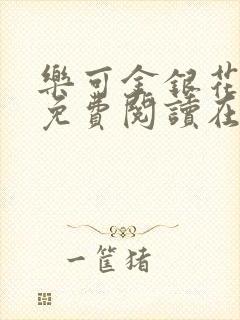 樂可金銀花
免費閱讀在
一筐猪